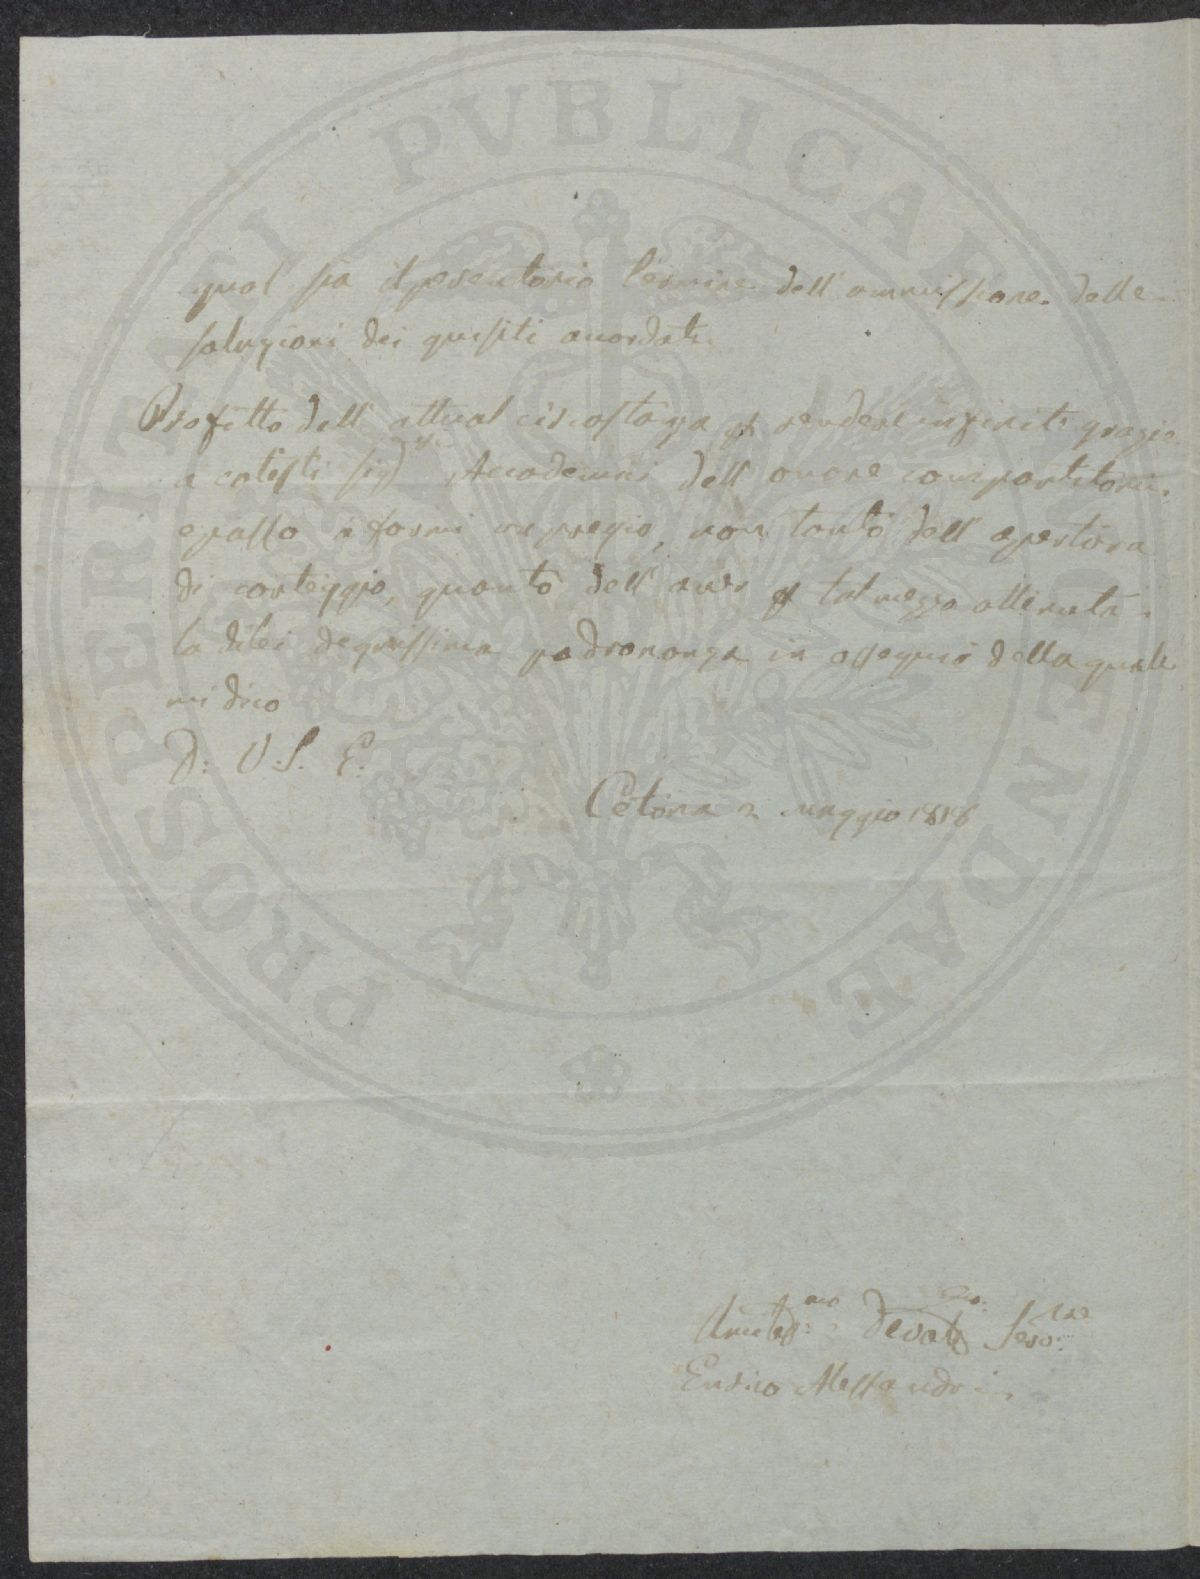 PROSPERITATI PUBLICAE AUGENDAE
qual sia il perentorio termine dell'ammissione delle
soluzioni dei quisiti accordati
Profitto dell'attual circostanza per rendere infinite grazie
a cotesti Sig.ri Accademici dell'onore compartitomi,
e passo a farmi un pregio, non tanto dell'apertura
di carteggio, quanto dell'aver per tal mezzo ottenuta
la di lei degnissima padronanza in ossequio della quale
mi dico
D: V. S. E.
Cetona 2 Maggio 1818
Umilis.mo Devot.mo Serv.tore
Enrico Alessandri